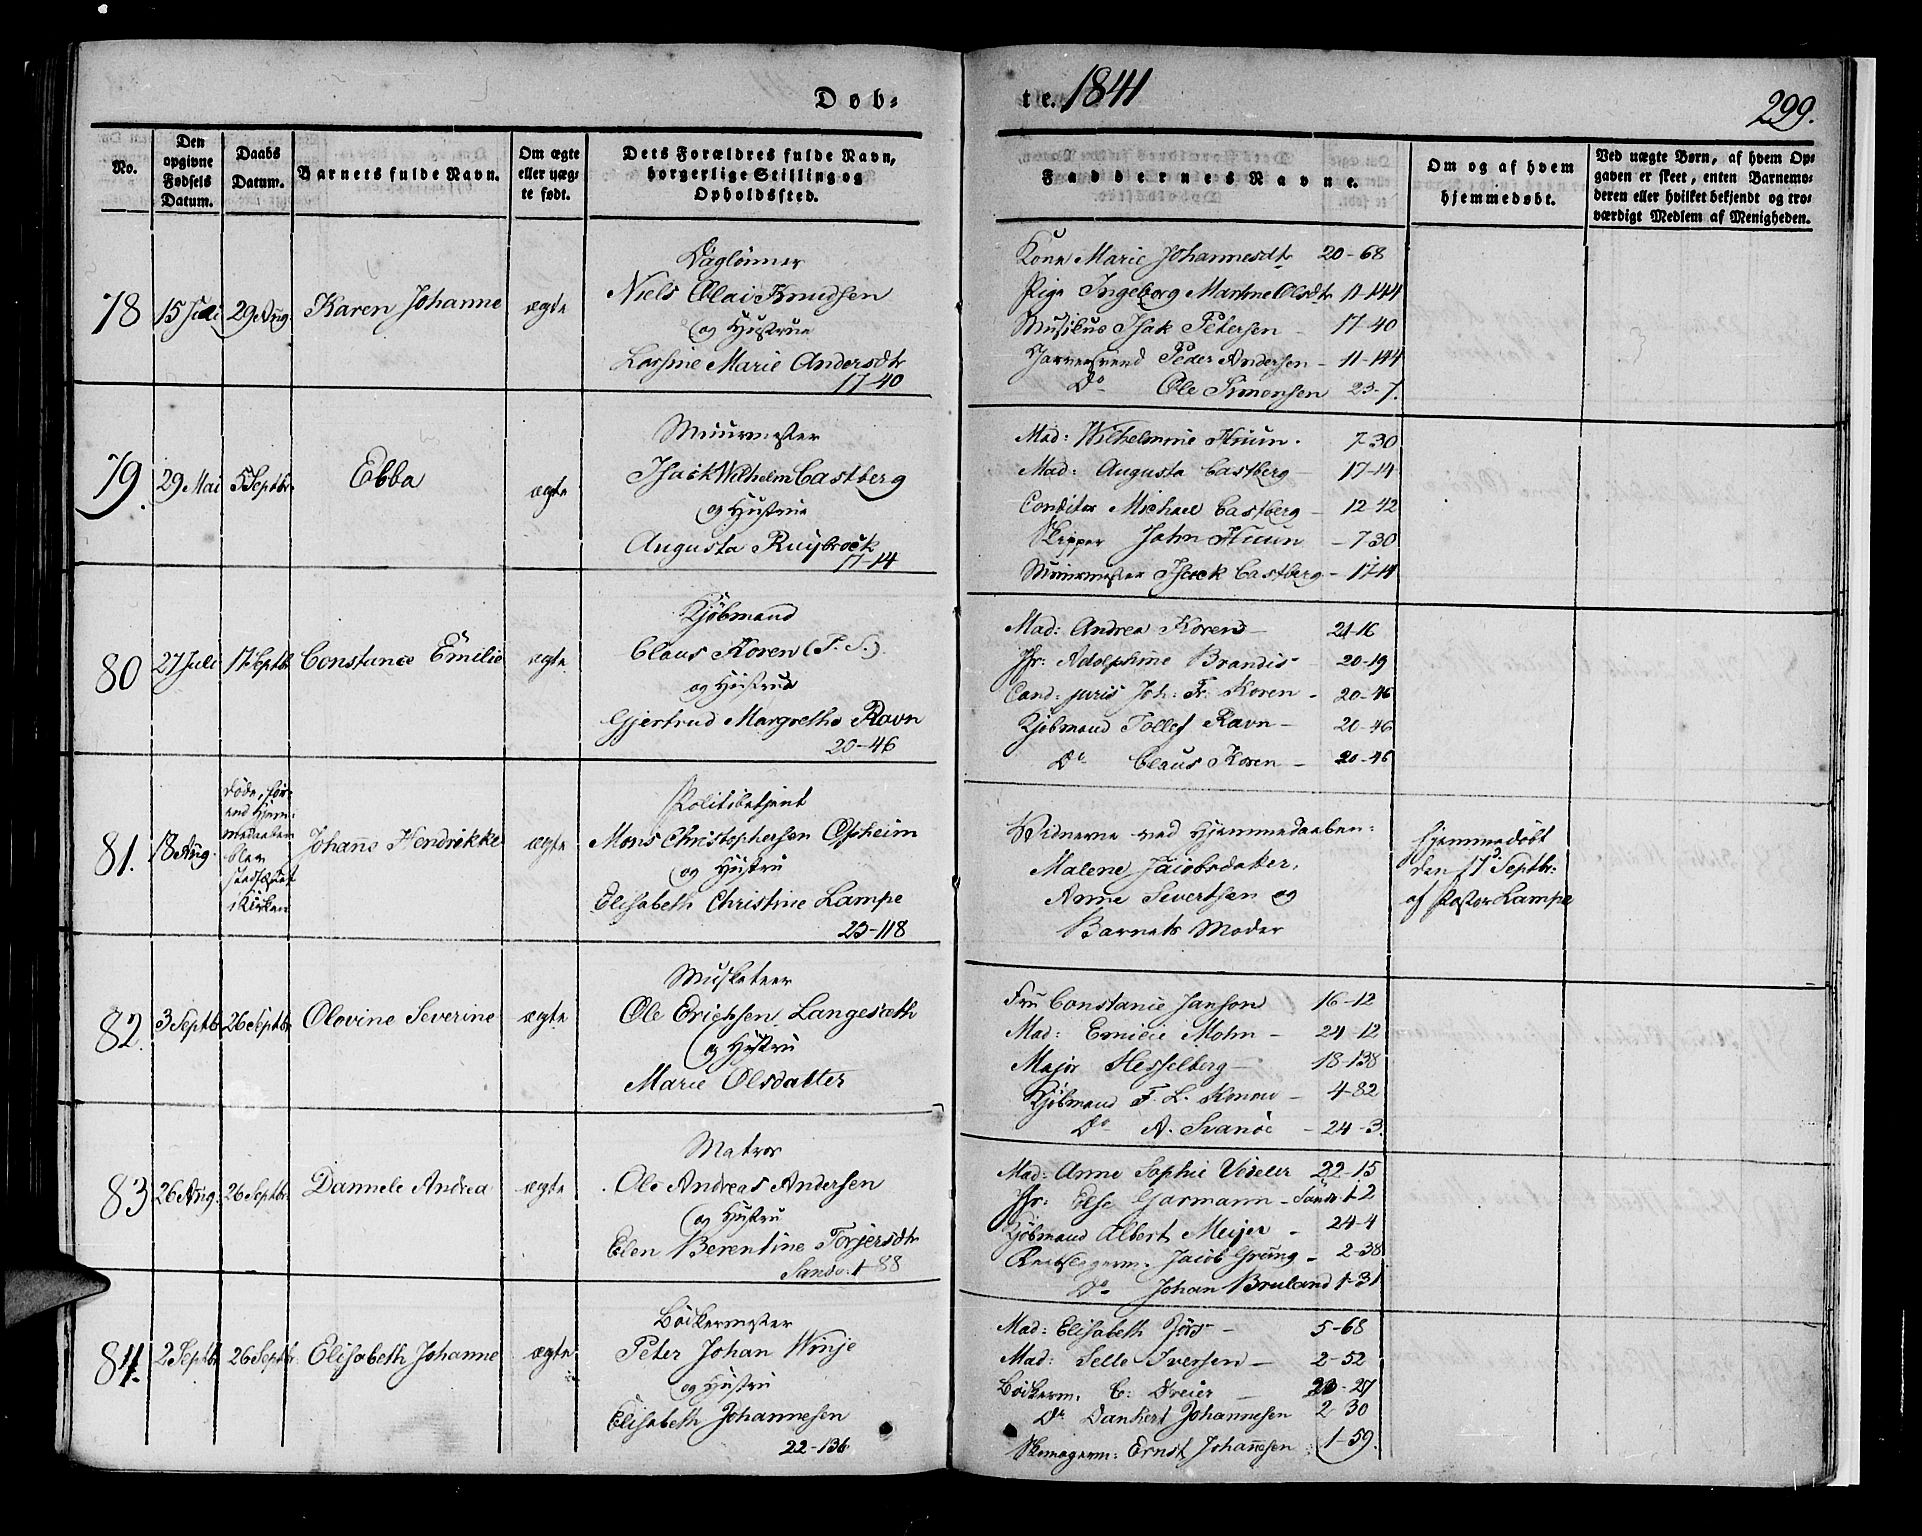 Døb-
te. 1841
299.
No.
Den opgivne Fødsels Datum.
Daabs Datum.
Barnets fulde Navn.
Om ægte eller uægte født.
Dets Forældres fulde Navn, borgerlige Stilling og Opholdssted.
Faddernes Navne.
Om og af hvem hjemmedøbt.
Ved uægte Børn, af hvem Opgaven er skeet, enten Barnemoderen eller hvilket bekjendt og troværdigt Medlem af Menigheden.
78 15 Juli 29 Aug. Karen Johanne ægte
Daglønner
Niels Olai Knudsen
og Hustrue
Lassine Marie Andersdtr
17-40
Kone Marie Johannesdtr 20-68
Pige Ingeborg Martine Olsdtr 11-144
Musikus Isak Petersen - 17-40
Peder Andersen - 11-144
Do Ole Simonsen 23-7.
79. 29 Mai 5 Septbr. Ebba ægte
Muurmester
Isack Wilhelm Castberg
og Hustrue
Augusta Ruysbrock
17-14
Mad: Wilhelmine Huun. 7-30
Mad: Augusta Castberg - 17-14
Conditor Michael Castberg - 12-42
Skipper John Huun - 7-30
Muurmester Isack Castberg - 17-14
80 27 Juli 17 Septbr Constance Emilie ægte
Kjøbmand
Claus Koren (F. S.)
og Hustrue
Gjertrud Margrethe Ravn
20-46
Mad: Andrea Koren - 24-16
Jfr: Adolphine Brandis - 20-19
Cand: juris Joh: Fr. Koren - 20-46
Kjøbmand Tollef Ravn - 20-46
Do Claus Koren - 20-46
81. 18 Aug.
døde, for-
end Hjem-
medaaben
blev
stadfæstet
i Kirken
Johanne Hendrikke ægte
Politibetjent
Mons Christophersen Opheim
og Hustru
Elisabeth Christine Lampe
23-118
Vidnerne ved Hjemmedaaben:
Malene Jacobsdatter,
Anne Sivertsen og
Barnets Moder
hjemmedøbt
den 17 Septbr.
af Pastor Lampe
82. 3 Septb 26 Septbr. Olovine Severine ægte
Musketeer
Ole Erichsen Langesæth
og Hustru
Marie Olsdatter
Fru Constance Janson 16-12
Mad: Emilie Mohn - 24-12
Major Hesselberg - 18-138
Kjøbmand F. L. Konow - 4-82
Do A. Svanöe - 24-3.
83 26 Aug. 26 Septbr. Dannele Andrea ægte
Matros
Ole Andreas Andersen
og Hustru
Elen Berentine Torjersdtr
Sandv. 1-88
Mad: Anne Sophie Veseler 22-15
Jfr: Else Garmann - Sandv 1-2
Kjøbmand Albert Meijer - 24-4
Jacob Grüng - 2-38
Do Johan Bruland 1-31
84. 2 Septbr 26 Septbr. Elisabeth Johanne ægte
Bödkermester
Peter Johan Winje
og Hustru
Elisabeth Johannesen
22-136
Mad: Elisabeth Jörs - 5-68
Mad: Selle Iversen - 2-52
Bödkerm: C: Dreier - 20-27
Do Dankert Johannesen 2 30
Skomagerm: Ernst Johannesen 1-59.